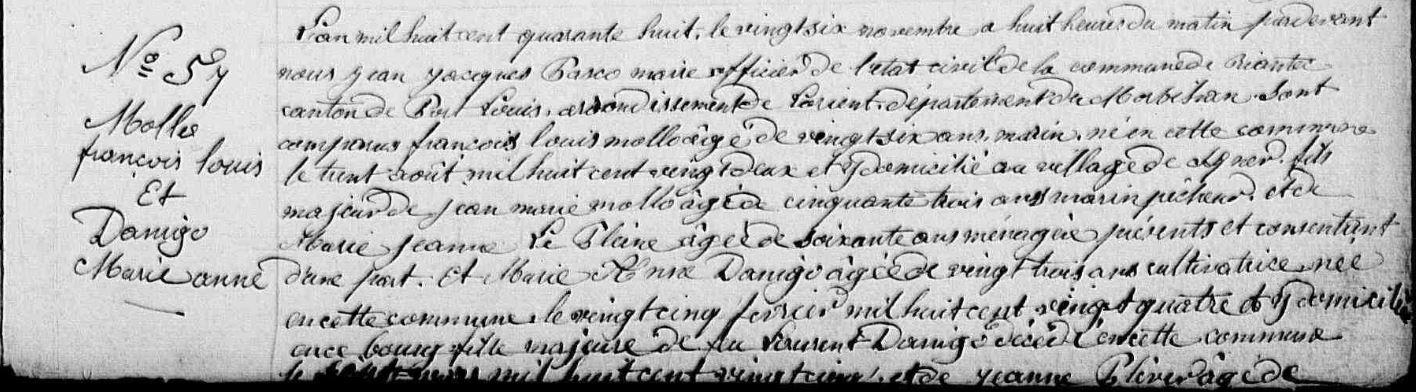 No 57
Mollo
françois louis
Et
Danigo
Marie anne
L'an mil huit cent quarante huit, le vingt six novembre a huit heures du matin pardevant
nous jean jacques Pasco maire officier de l'état civil de la commune de riantec
canton de Port Louis, arrondissement de Lorient, département du Morbihan. Sont
comparus françois louis mollo âgé de vingt six ans, marin, né en cette commune
le trent août mil huit cent vingt deux et y domicilié au village de fils
majeur de jean marie mollo âgé de cinquante trois ans marin pêcheur, et de
Marie jeanne Le âgée de soixante ans ménagère présents et consentant
d'une part. Et Marie Anne Danigo âgée de vingt trois ans cultivatrice née
en cette commune, le vingt cinq février mil huit cent vingt quatre et y domicilié
en ce bourg fille majeure de feu Laurent Danigo décédé en cette commune
le mil huit cent vingt et de jeanne âgée de